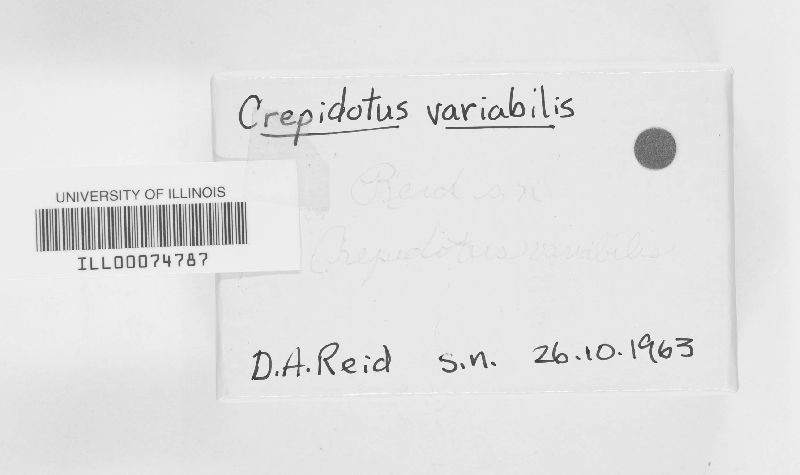 Crepidotus variabilis
Reid s.n
Crepidotus variabilis
UNIVERSITY OF ILLINOIS
ILL00074787
D.A.Reid s.n. 26.10.1963